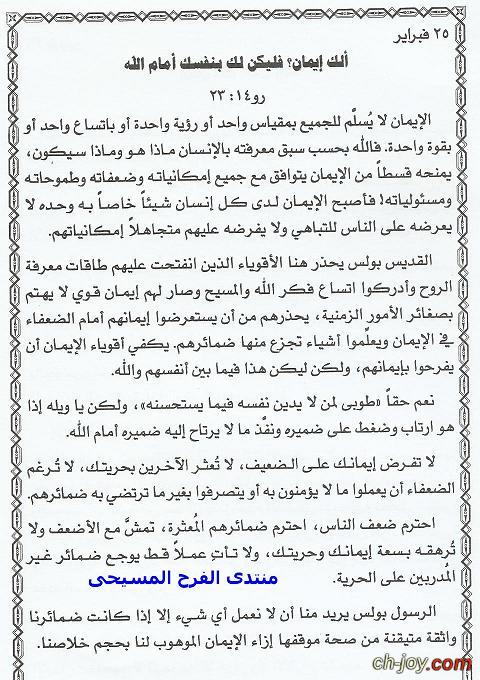 ٢٥ فبراير
ألك إيمان؟ فليكن لك بنفسك أمام الله
رو١٤: ٢٣
الإيمان لا يُسلَّم للجميع بمقياس واحد أو رؤية واحدة أو باتساع واحد أو
بقوة واحدة. فالله بحسب سبق معرفته بالإنسان ماذا هو وماذا سيكون،
يمنحه قسطاً من الإيمان يتوافق مع جميع إمكانياته وضعفاته وطموحاته
ومسئولياته! فأصبح الإيمان لدى كل إنسان شيئاً خاصاً به وحده لا
يعرضه على الناس للتباهي ولا يفرضه عليهم متجاهلاً إمكانياتهم.
القديس بولس يحذر هنا الأقوياء الذين انفتحت عليهم طاقات معرفة
الروح وأدركوا اتساع فكر الله والمسيح وصار لهم إيمان قوي لا يهتم
بصغائر الأمور الزمنية، يحذرهم من أن يستعرضوا إيمانهم أمام الضعفاء
في الإيمان ويعلِّموا أشياء تجزع منها ضمائرهم. يكفي أقوياء الإيمان أن
يفرحوا بإيمانهم، ولكن ليكن هذا فيما بين أنفسهم والله.
نعم حقاً «طوبى لمن لا يدين نفسه فيما يستحسنه»، ولكن يا ويله إذا
هو ارتاب وضغط على ضميره ونفَّذ ما لا يرتاح إليه ضميره أمام الله.
لا تفرض إيمانك على الضعيف، لا تُعثر الآخرين بحريتك، لا تُرغم
الضعفاء أن يعملوا ما لا يؤمنون به أو يتصرفوا بغير ما ترتضي به ضمائرهم.
احترم ضعف الناس، احترم ضمائرهم المُعثرة، تمشَّ مع الأضعف ولا
تُرهقه بسعة إيمانك وحريتك، ولا تأتِ عملاً قط يوجع ضمائر غير
المُدربين على الحرية.
منتدى الفرح المسيحى
الرسول بولس يريد منا أن لا نعمل أي شيء إلا إذا كانت ضمائرنا
واثقة متيقنة من صحة موقفها إزاء الإيمان الموهوب لنا بحجم خلاصنا.
ch-joy.com